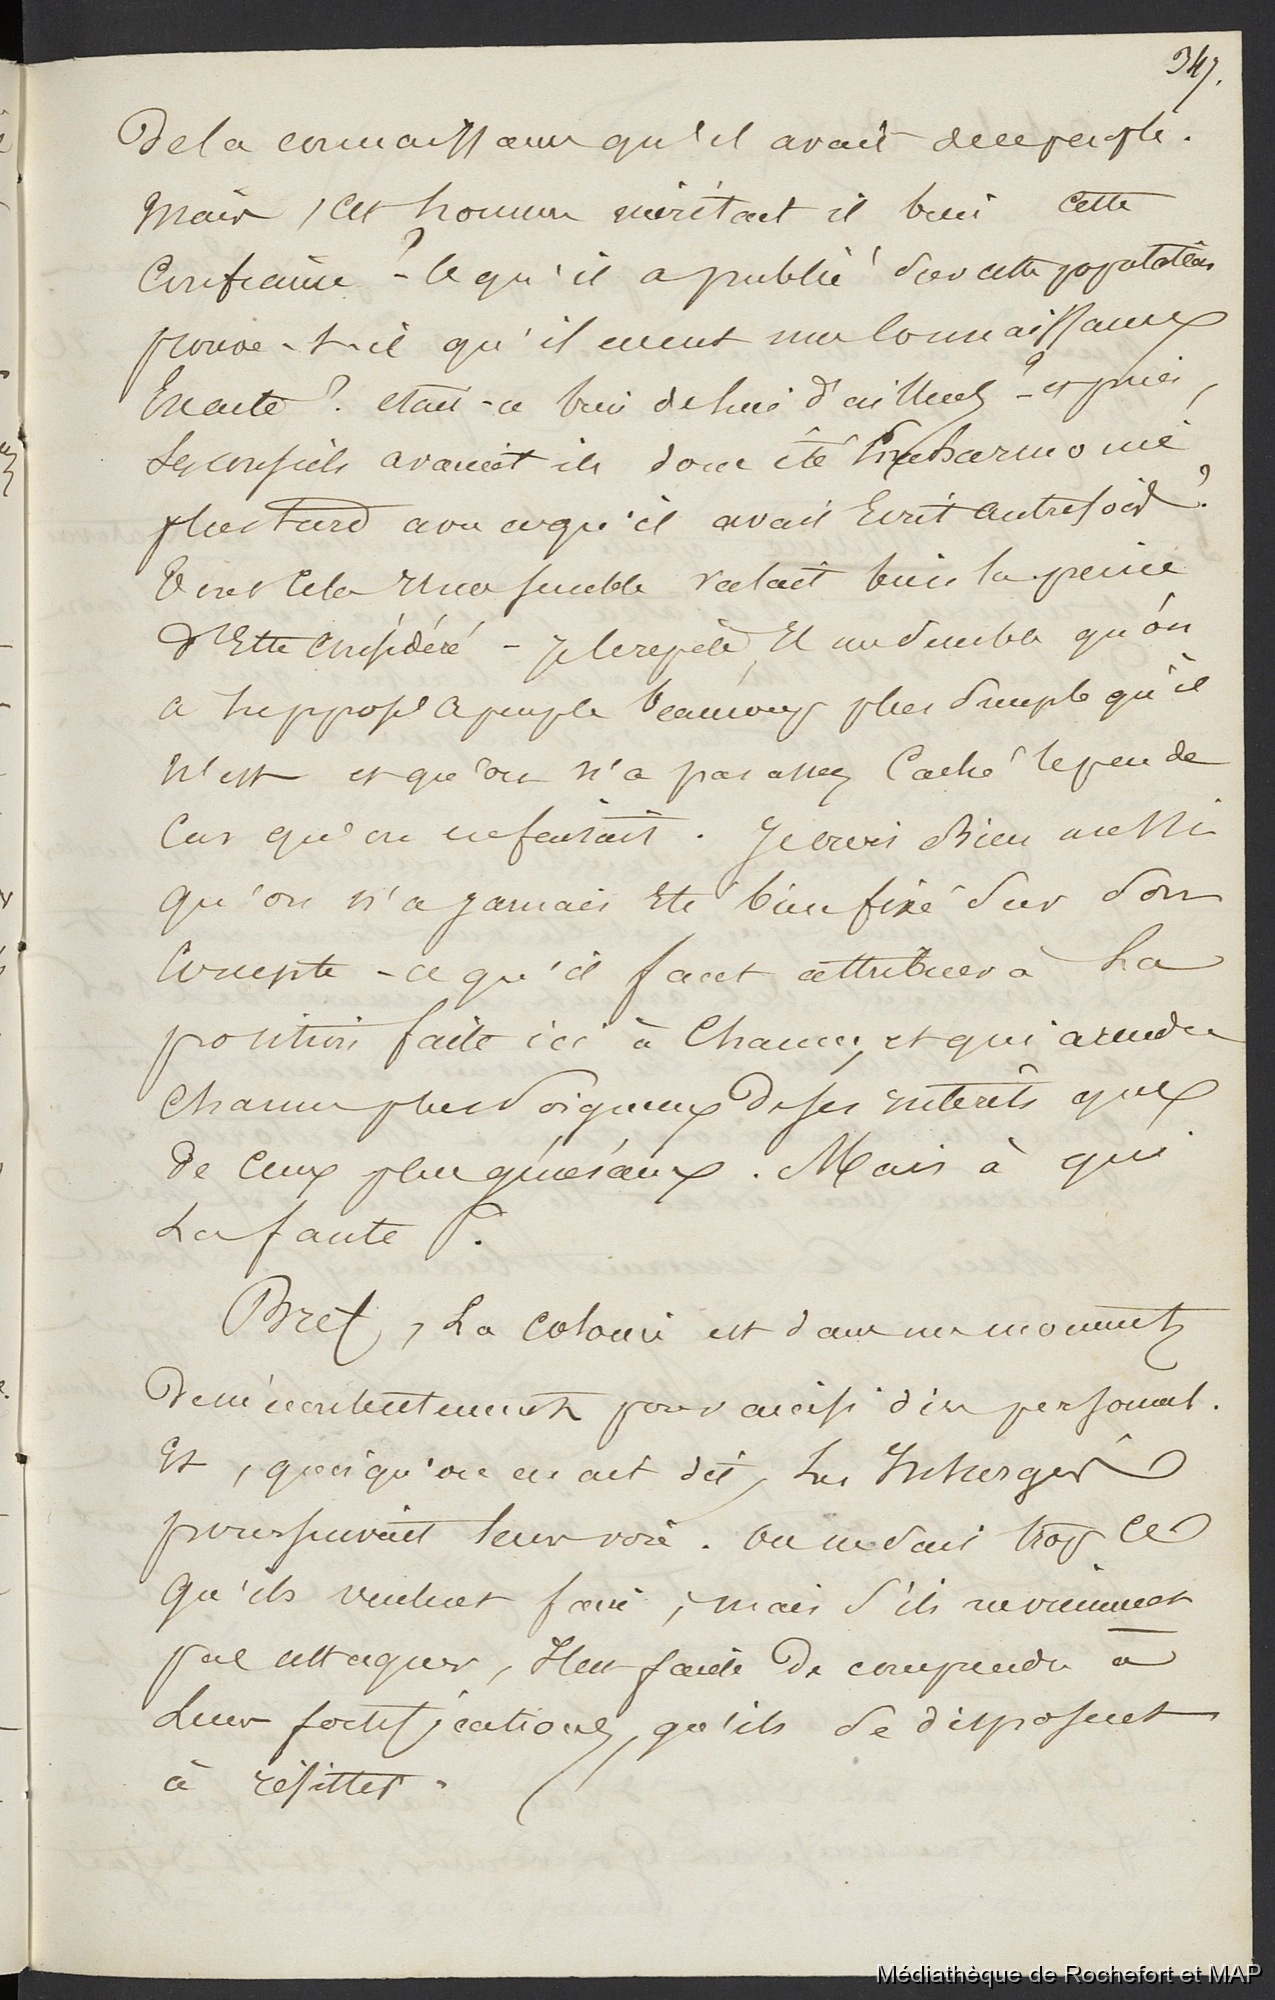 347.
De la connaissance qu'il avait de ce peuple.
Mais, cet homme méritait il bien cette
Confiance ? - Ce qu'il a publié sur cette population
prouve-t-il qu'il en eut une connaissance
Exacte ? était-ce bien de lui d'ailleurs ? - et puis,
Ses conseils avaient ils donc été En harmonie
plus tard avec ce qu'il avait Ecrit autrefois ?
Tout cela ce me semble valait bien la peine
d'Etre Considéré - je le répète, Il me semble qu'on
a supposé ce peuple beaucoup plus simple qu'il
n'est et qu'on n'a pas assez Caché le peu de
Cas qu'on en faisait. Je crois Bien aussi
qu'on n'a jamais Eté bien fixé sur son
Compte - ce qu'il faut attribuer à La
position faite ici à Chacun, et qui a rendu
Chacun plus soigneux de ses intérêts que
de Ceux plus généraux. Mais à qui
La faute ?.
Bref, La Colonie est dans un moment
De mécontentement pour ainsi dire personnel.
Et, quoiqu'on en ait dit, Les Insurgés
poursuivent leur voie. On ne sait trop Ce
Qu'ils veulent faire, mais s'ils ne viennent
pas attaquer, Il est facile De comprendre à
Leurs fortifications, qu'ils se disposent
à résister.
Médiathèque de Rochefort et MAP